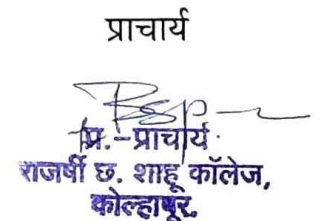 प्राचार्य
प्र.-प्राचार्य.
राजर्षी छ. शाहू कॉलेज,
कोल्हापूर.